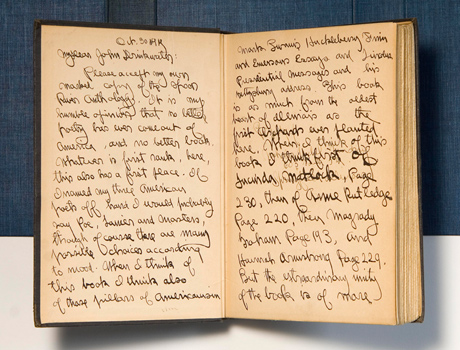 Oct. 30 1919
My dear John Drinkwater:
Please accept my own
marked copy of the Spoon
River Anthology. It is my
humble opinion that no better
poetry has ever come out of
America, and no better book.
Whatever is first rank, here,
this also has a first place. If
I named my three American
poets off hand I would probably
say Poe, Lanier and Masters,
though of course there are many
possible choices according
to mood. When I think of
this book I think also
of those pillars of Americanism
Mark Twain's Huckleberry Finn
and Emerson's Essays and Lincoln
Presidential Messages and his
Gettysburg address. This book
is as much from the oldest
heart of Illinois as the
first were planted
here. When I think of this
book I think first of
Lucinda Matlock, Page
230, then of Anne Rutledge
Page 220, then
Graham Page 193, and
Hannah Armstrong Page 229.
But the extraordinary unity
of the book is of more